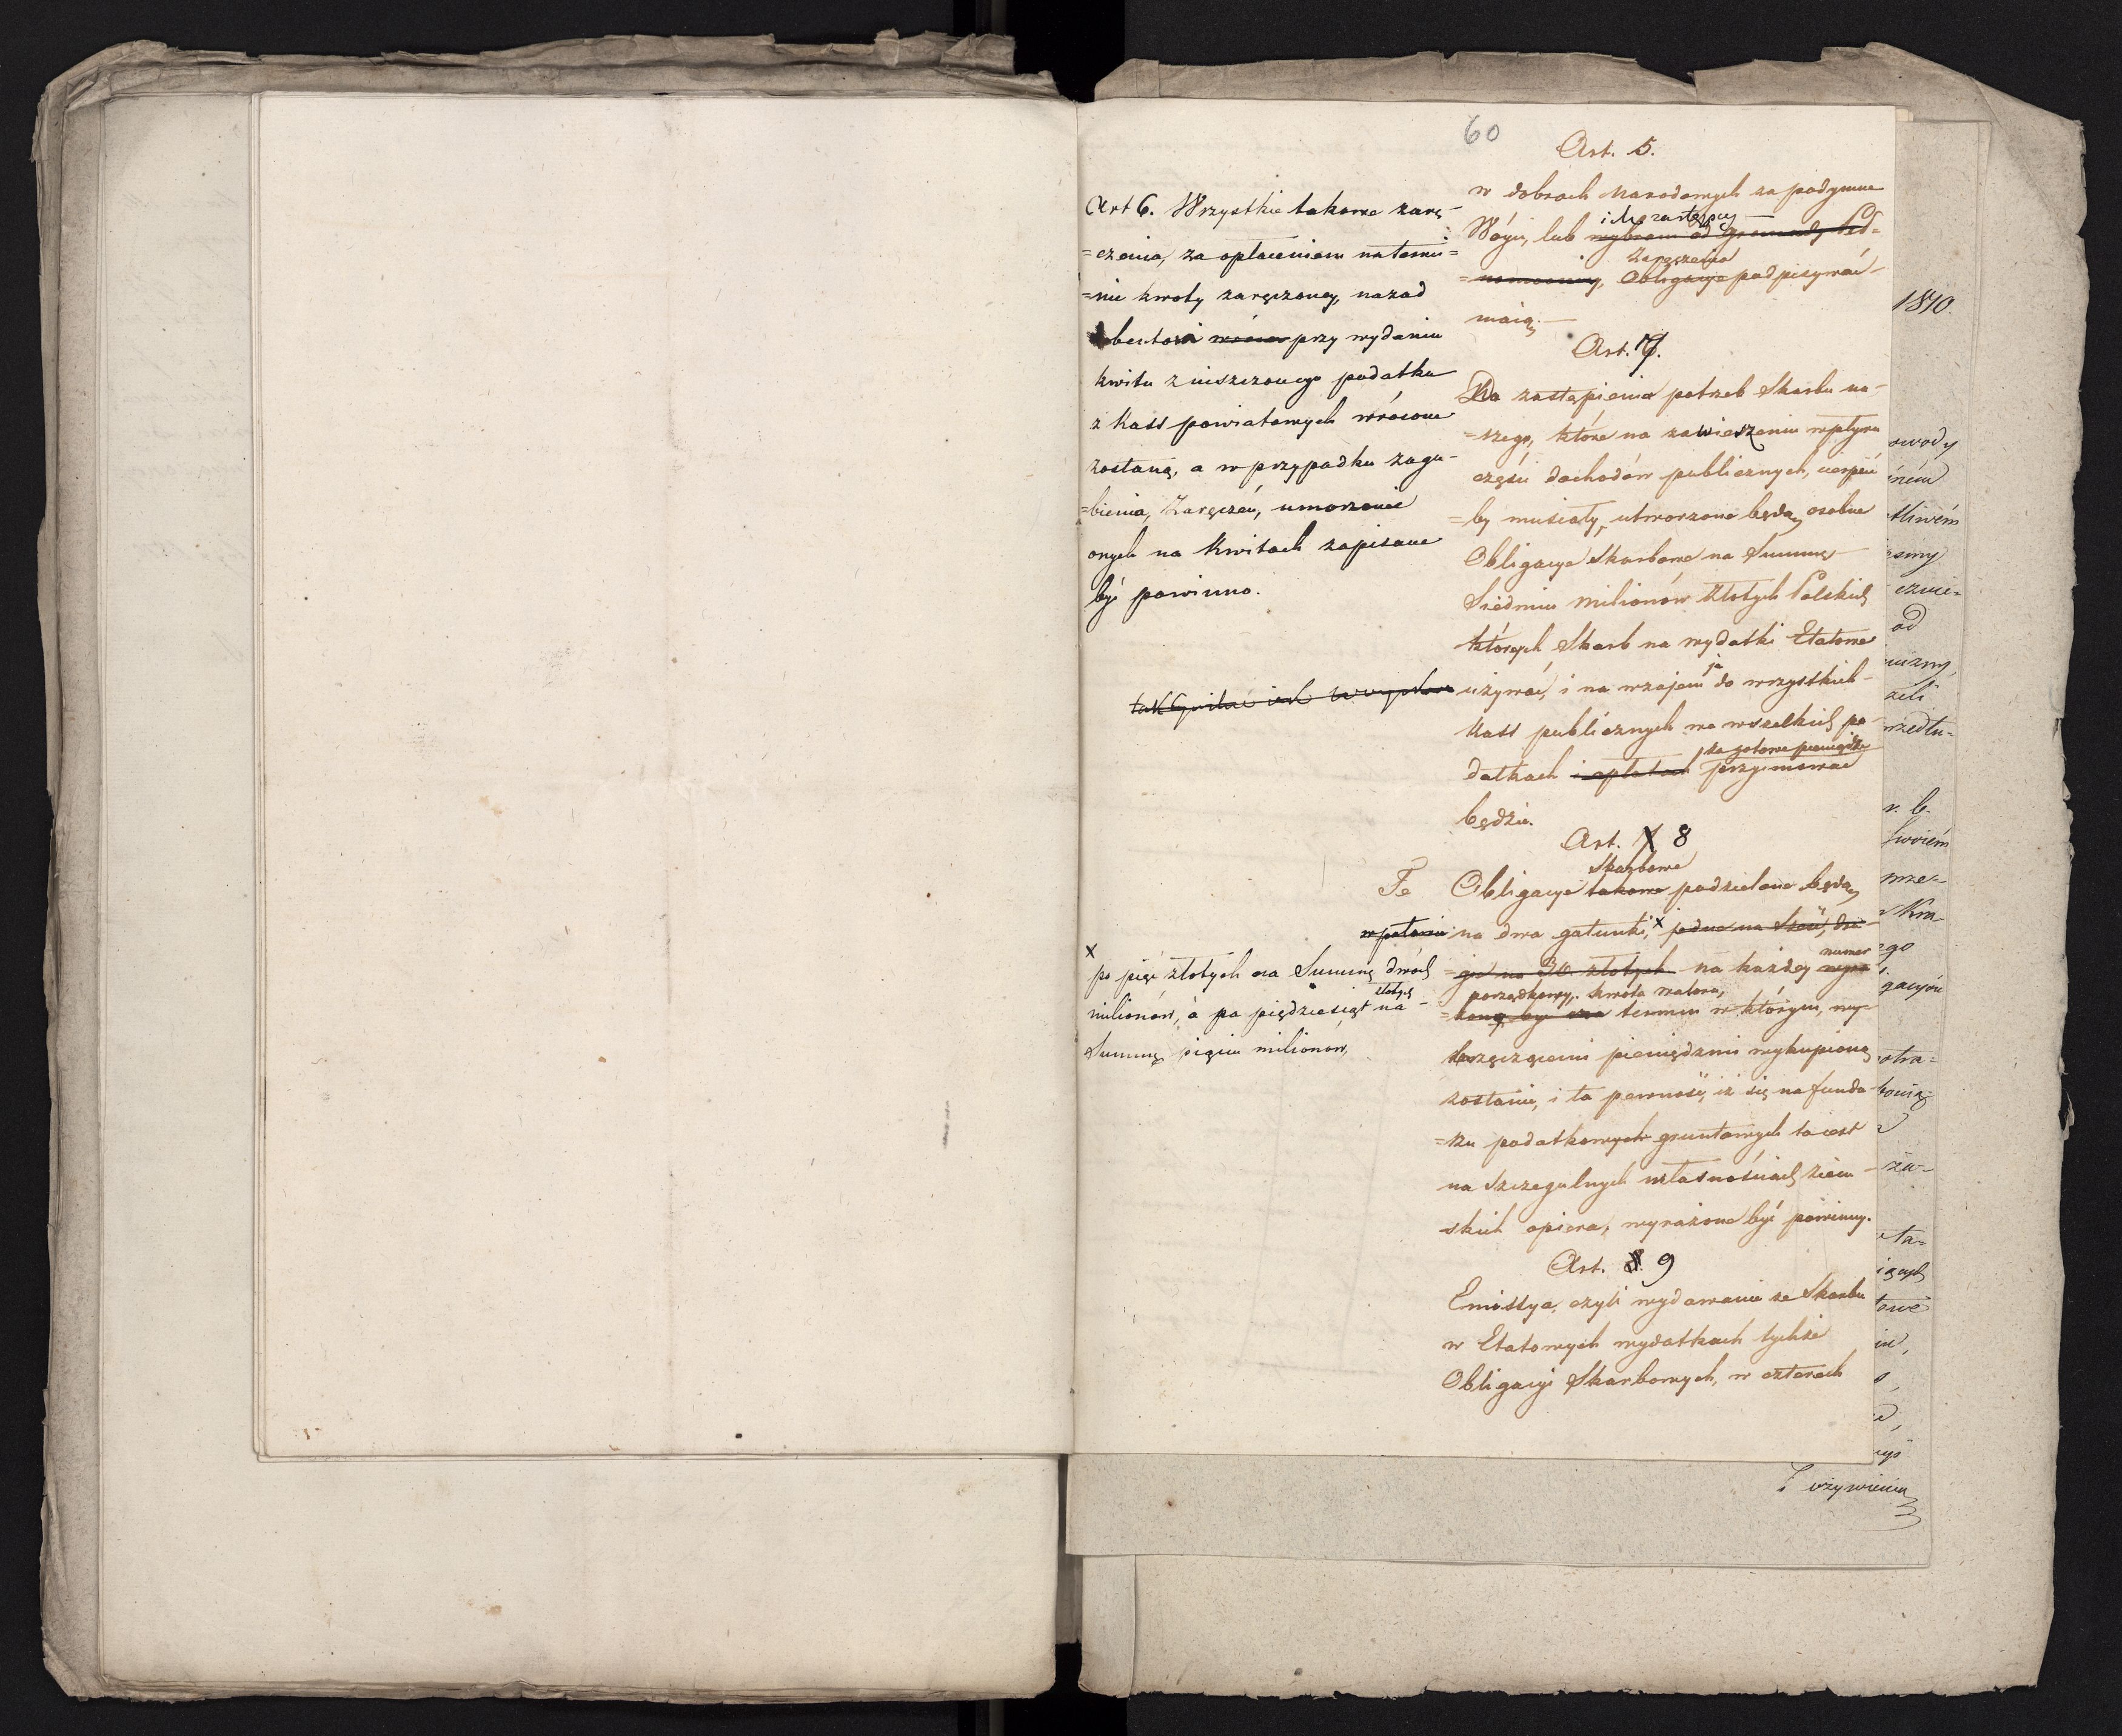 60
Art. 5.
w dobrach Narodowych za podymne
Wóyci, lub wybrani od Gromady Peł=
ich zastępcy
=nomocnicy, Obligacye podpisywać
Zaręczenia
maią.
Art. 7.
Dla zastąpienia potrzeb Skarbu na-
=szego, które na zawieszeniu wpływu
części dochodów publicznych, cierpieć
=by musiały, utworzone będą osobne
Obligacye Skarbowe na Summę
Siedmiu Milionów Złotych Polskich
których Skarb na wydatki Etatowe
używać, i na wzajem je do wszystkich
Kass publicznych we wszelkich po-
datkach i opłatach przyjmować
za gotowe pieniądze
będzie.
Art. 7 8
Skarbowe
Te Obligacye takowe podzielone będą
na dwa gatunki, x jedne na Sześć, dru-
=gie na 30. złotych na każdey wyra
numer
porządkowy, kwota waloru,
termin w którym, wy-
brzęczącemi pieniędzmi wykupioną
zostanie, i ta pewność, iż się na fundu
=szu podatkowych gruntowych to iest
na szczegulnych własnościach ziem-
skich opiera, wyrażone być powinny.
Art. 8. 9
Emissya, czyli wydawanie ze Skarbu
w Etatowych wydatkach tychże
Obligacyi Skarbowych, w czterech
Art 6. Wszystkie takowe zarę-
=czenia, za opłaceniem w termi=
=nie kwoty zaręczoney, nazad
przy wydaniu
kwitu z uiszczonego podatku
z Kass powiatowych wrócone
zostaną, a w przypadku zagu-
=bienia, Zaręczeń, umorzenie
onych na Kwitach zapisane
być powinno.
x
po pięć złotych na Summę dwóch
milionów, à po pięćdziesiąt złotych na
Summę pięciu milionów,
1810.
owody
cznie=
od
v. b.
Swoiém
Kra-
go
gacyów
otra=
ża-
z ożywienia